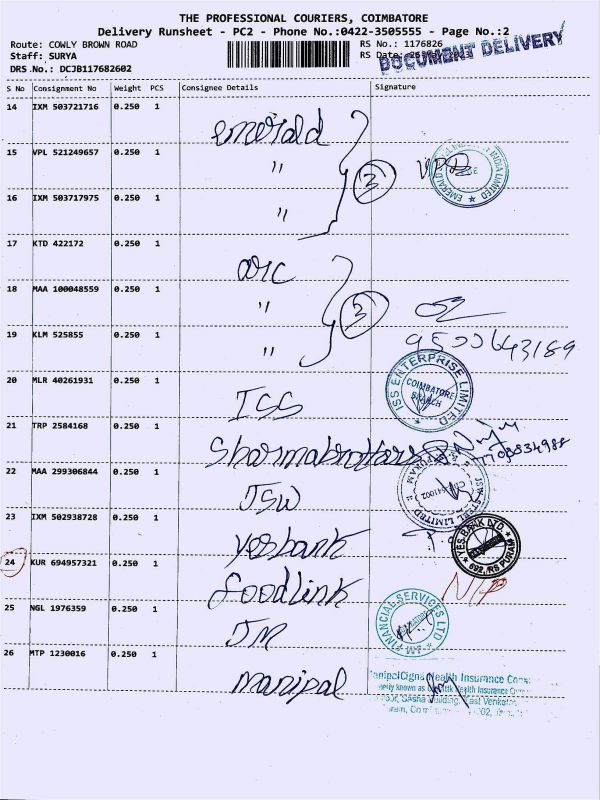 THE PROFESSIONAL COURIERS, COIMBATORE
Delivery Runsheet - PC2 - Phone No.:0422-3505555 - Page No.:2
Route: COWLY BROWN ROAD
RS No.: 1176826
Staff: SURYA
RS Date:
DOCUMENT DELIVERY
DRS No.: DCJB117682602
S No Consignment No Weight PCS Consignee Details Signature
14 IXM 503721716 0.250 1 emerald
15 VPL 521249657 0.250 1 "
16 IXM 503717975 0.250 1 "
3
17 KTD 422172 0.250 1 arc
18 MAA 100048559 0.250 1 "
19 KLM 525855 0.250 1 "
3
20 MLR 40261931 0.250 1 ISS
ISS ENTERPRISE LIMITED
COIMBATORE
BRANCH
21 TRP 2584168 0.250 1 Sharmabrothers
22 MAA 299306844 0.250 1 JSW
JSW STEEL LIMITED
641002
23 IXM 502938728 0.250 1 yesbank
YES BANK LTD
692, RS PURAM
24 KUR 694957321 0.250 1 foodlink
N/P
25 NGL 1976359 0.250 1 JM
JM FINANCIAL SERVICES LTD
26 MTP 1230016 0.250 1 manipal
Health Insurance
known as
Health Insurance